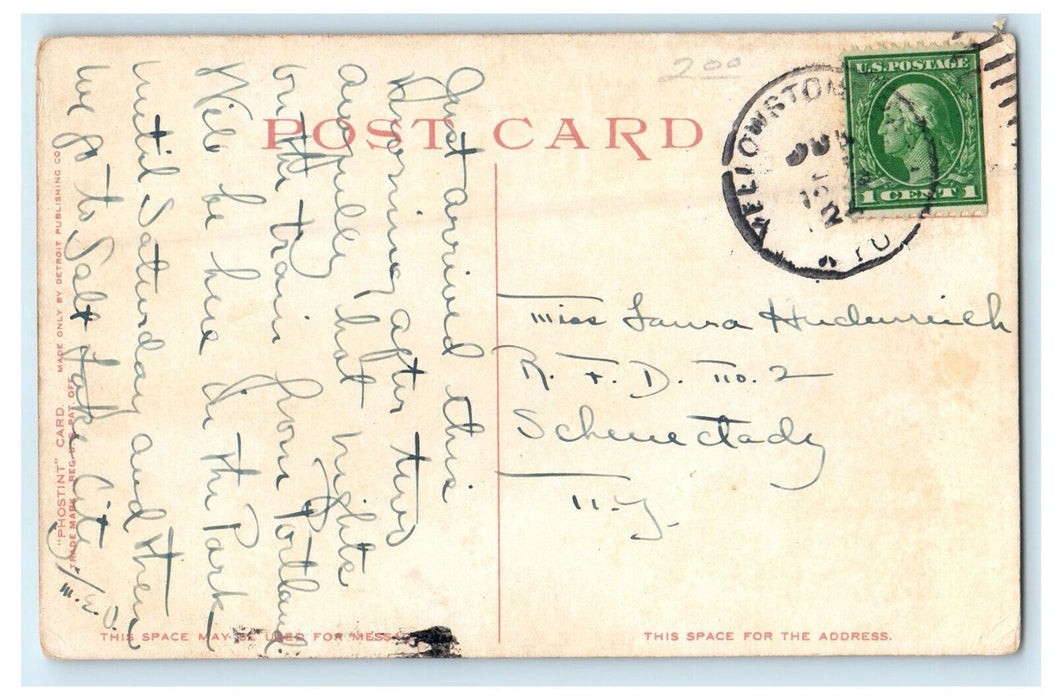 2.00
U.S.POSTAGE
1 CENT 1
POST CARD
Just arrived this
morning after two
awfully hot nights
on the train from Portland.
Will be here in the Park
until Saturday and then
we go to Salt Lake City.
M.E.O.
Miss Laura Hudenreich
R. F. D. no. 2
Schenectady
N.Y.
"PHOSTINT" CARD. MADE ONLY BY DETROIT PUBLISHING CO
TRADE MARK REG. U.S. PAT. OFF.
THIS SPACE MAY BE USED FOR
THIS SPACE FOR THE ADDRESS.